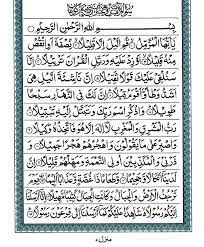 بِسْمِ اللهِ الرَّحْمٰنِ الرَّحِيْمِ
يٰۤاَيُّهَا الْمُزَّمِّلُ ۙ قُمِ الَّيْلَ اِلَّا قَلِيْلًا ۙ نِّصْفَهٗۤ اَوِ انْقُصْ
مِنْهُ قَلِيْلًا ۙ اَوْ زِدْ عَلَيْهِ وَرَتِّلِ الْقُرْاٰنَ تَرْتِيْلًا ؕ اِنَّا
سَنُلْقِيْ عَلَيْكَ قَوْلًا ثَقِيْلًا اِنَّ نَاشِئَةَ الَّيْلِ هِيَ
اَشَدُّ وَطْاً وَّاَقْوَمُ قِيْلًا ؕ اِنَّ لَكَ فِي النَّهَارِ سَبْحًا
طَوِيْلًا ؕ وَاذْكُرِ اسْمَ رَبِّكَ وَتَبَتَّلْ اِلَيْهِ تَبْتِيْلًا ؕ
رَبُّ الْمَشْرِقِ وَالْمَغْرِبِ لَاۤ اِلٰهَ اِلَّا هُوَ فَاتَّخِذْهُ وَكِيْلًا
وَاصْبِرْ عَلٰى مَا يَقُوْلُوْنَ وَاهْجُرْهُمْ هَجْرًا جَمِيْلًا
وَذَرْنِيْ وَالْمُكَذِّبِيْنَ اُولِي النَّعْمَةِ وَمَهِّلْهُمْ قَلِيْلًا
اِنَّ لَدَيْنَاۤ اَنْكَالًا وَّجَحِيْمًا ۙ وَّطَعَامًا ذَا غُصَّةٍ وَّعَذَابًا اَلِيْمًا يَوْمَ
تَرْجُفُ الْاَرْضُ وَالْجِبَالُ وَكَانَتِ الْجِبَالُ كَثِيْبًا مَّهِيْلًا اِنَّاۤ اَرْسَلْنَاۤ
اِلَيْكُمْ رَسُوْلًا شَاهِدًا عَلَيْكُمْ كَمَاۤ اَرْسَلْنَاۤ اِلٰى فِرْعَوْنَ رَسُوْلًا
منزل ٧